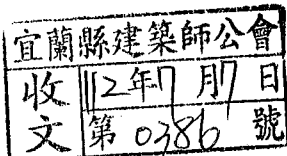 宜蘭縣建築師公會
收文
112年7月7日
第0386號